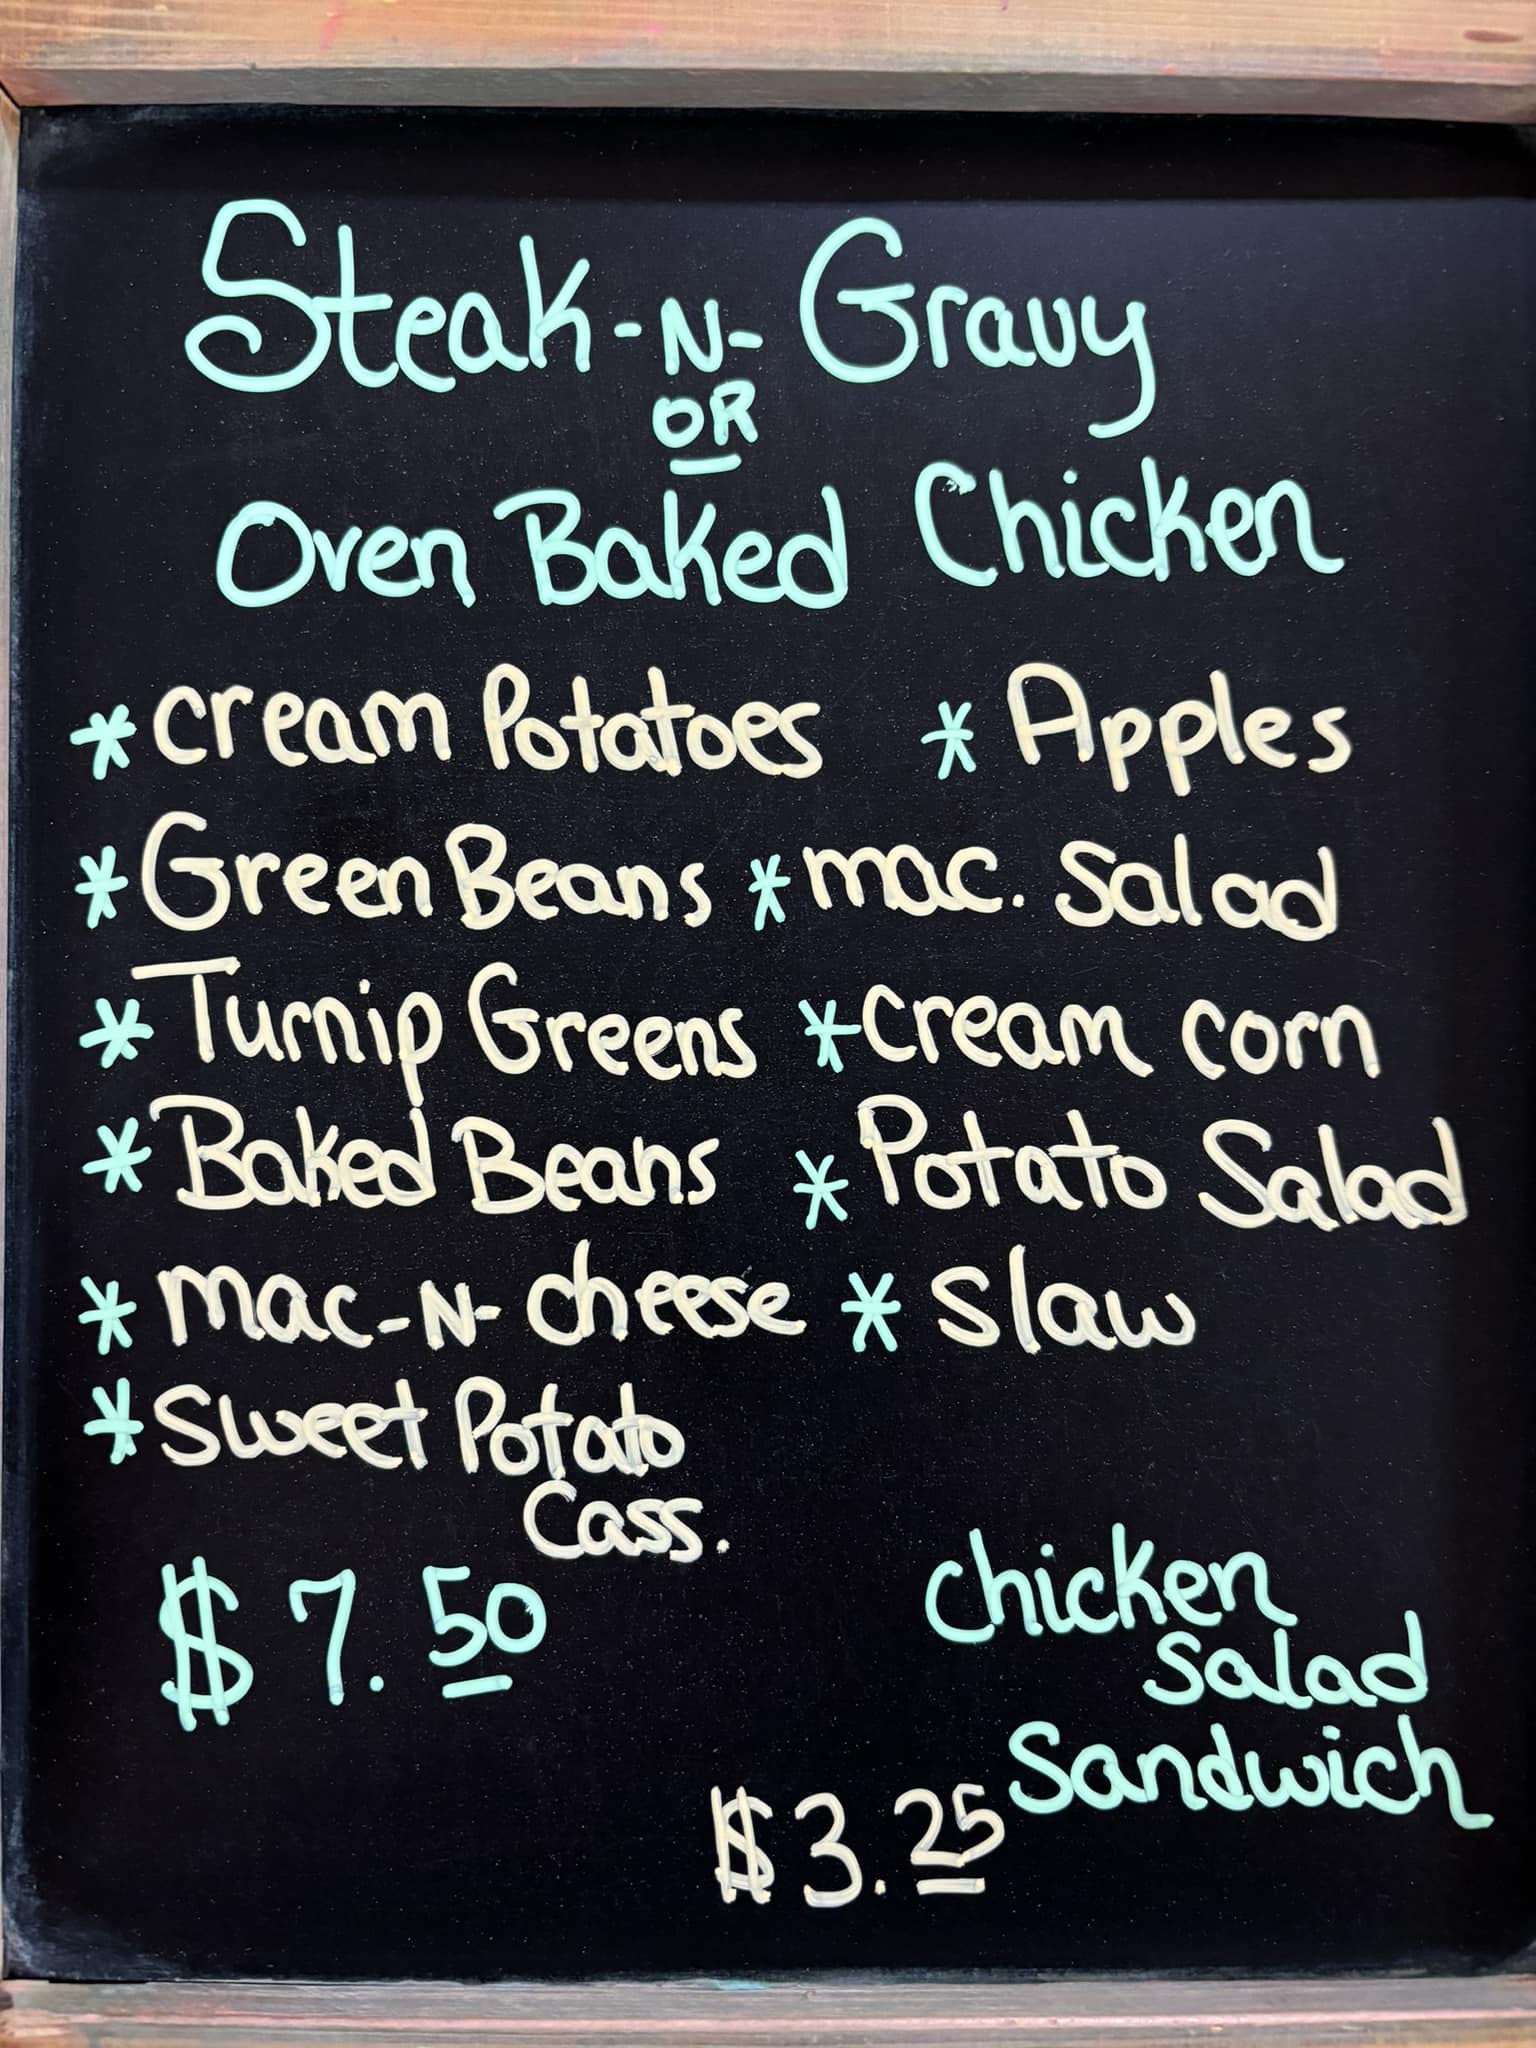 Steak-N-Gravy
OR
Oven Baked Chicken
* cream Potatoes * Apples
* Green Beans * mac. Salad
* Turnip Greens * cream corn
* Baked Beans * Potato Salad
* mac-N-cheese * slaw
* Sweet Potato
Cass.
$7.50
chicken
salad
Sandwich
$3.25